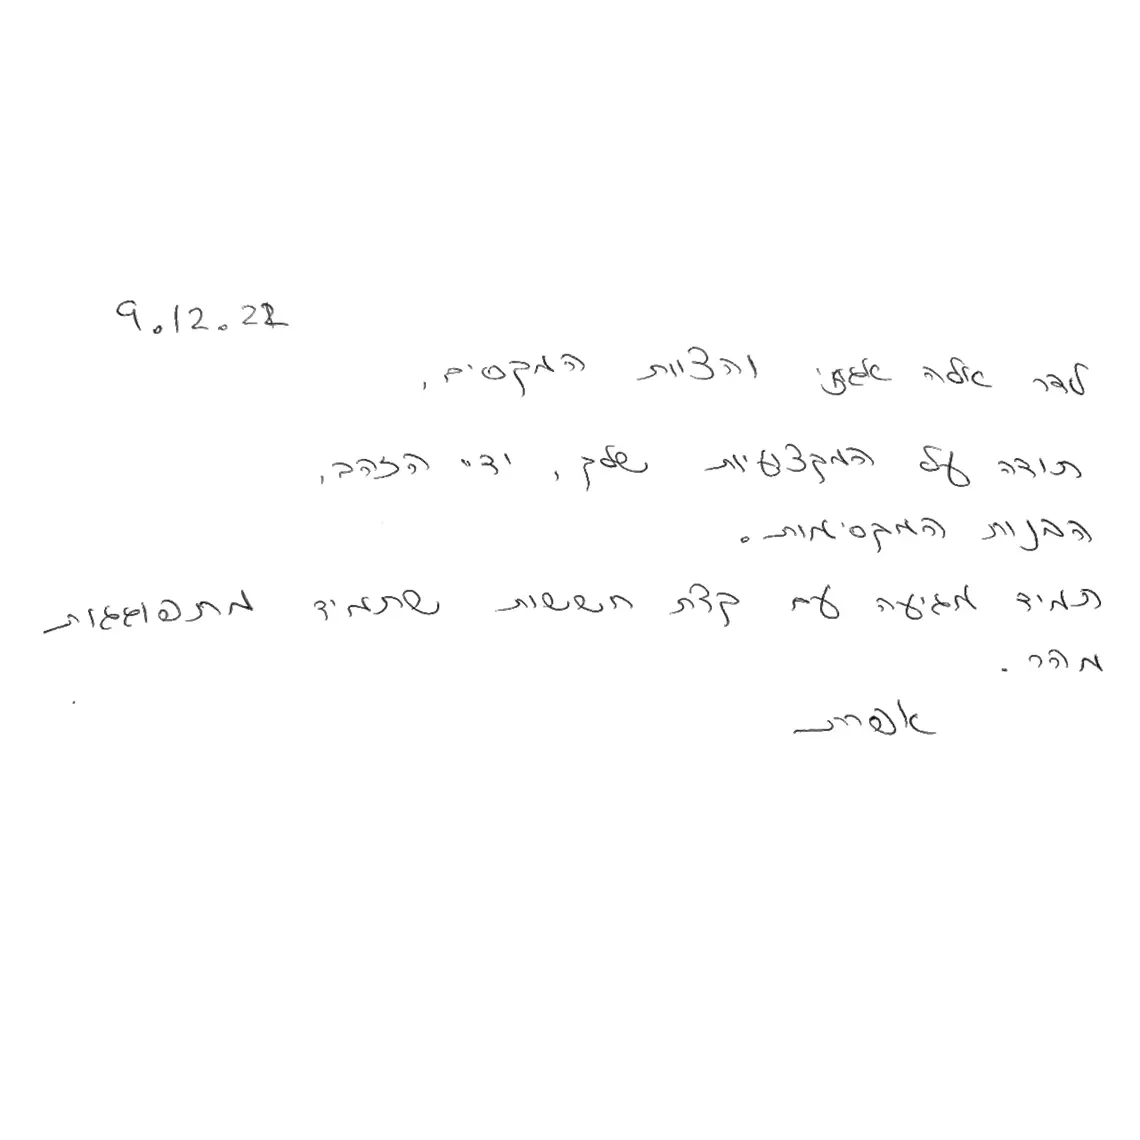 9.12.22
לדר אלה והצוות המקסים,
תודה על המקצעיות שלך, ידיי הזהב,
הבנות המקסימות.
תמיד מגיעה עם קצת חששות שתמיד מתפוגגות
מהר.
אפרת